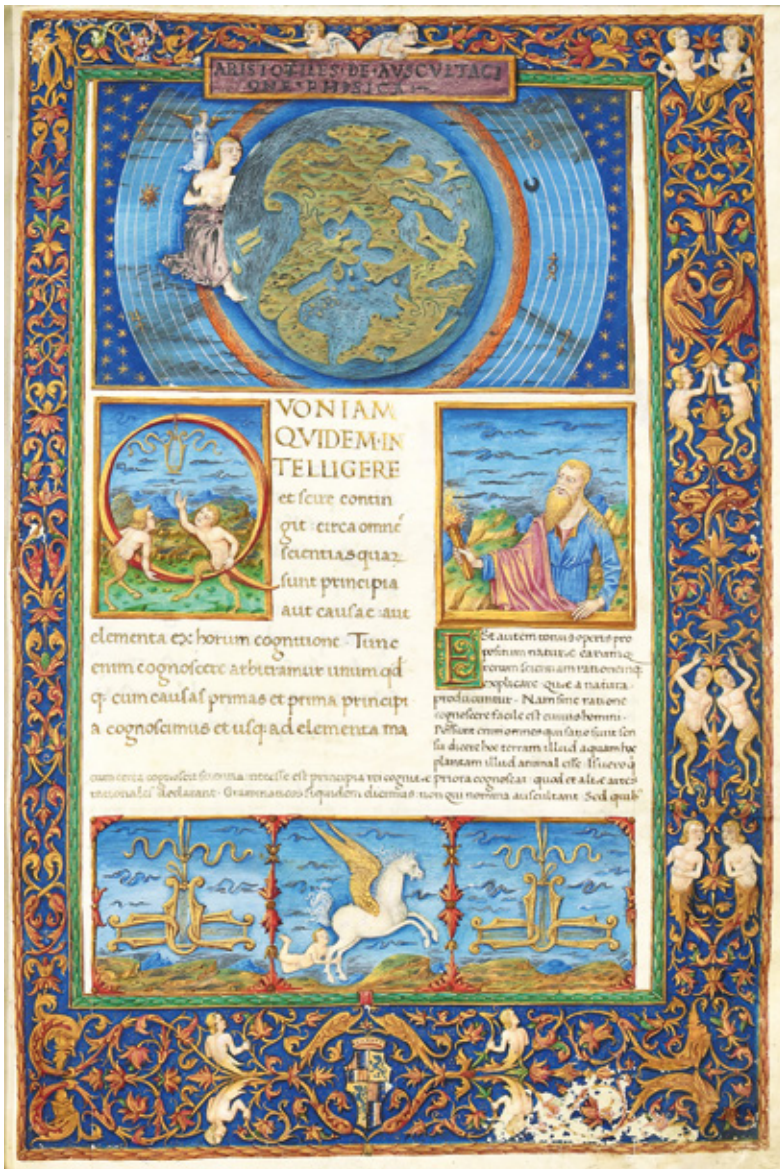 ARISTOTILES·DE·AVSCVLTACI
ONE·PHISICA
QVONIAM
QVIDEM·IN
TELLIGERE
et scire contin
git circa omnē
scientias quaꝝ
sunt principia
aut causae aut
elementa ex horum cognitione· Tunc
enim cognoscere arbitramur unum qd
q· cum causas primas et prima principi
a cognoscimus et usq· ad elementa ma
Est autem operis pro
positum naturae earumq
rerum scientiam
explicare quae a natura
producuntur· Nam sine ratione
cognoscere facile est cuivis homini·
Possunt enim omnes qui
dicere hoc terram illud aquam hoc
plantam illud animal esse·
principia rei cognitae priora cognoscat· quod et aliae artes
rationales declarant· Grammaticos siquidem dicimus· non qui nomina auscultant· Sed quib